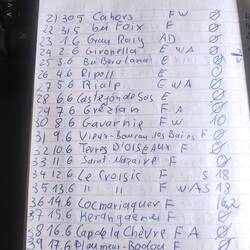 21) 30.5 Cahors F W 0
22 31.5 bu Foix F 0
23 1.6 Grau Roig AD 0
24 2.6 Gironella E W A 0
25 3.6 E 0
26 4.6 Ripoll E 0
27 5.6 Rialp E W A 0
28 6.6 Castejon de Sos E 0
29 7.6 Grezian F A 0
30 8.6 Gavarnie F W 10
31 9.6 Vieux-Boucau les Bains F 0
32) 10.6 Terres D'OISEAUX F 0
33 11.6 Saint-Nazaire F 0
34 12.6 Le Croisic F S 18
35 13.6 " " F W A S 18
36 14.6 Locmariaquer F 16,2
37 15.6 F 0
38 16.6 Cap de la Chèvre F A 0
39 17.6 Pleumeur-Bodou F 0